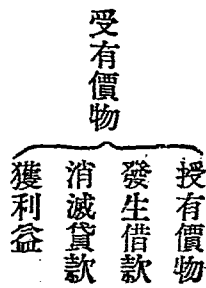 受有價物
授有價物
發生借款
消滅貸款
獲利益